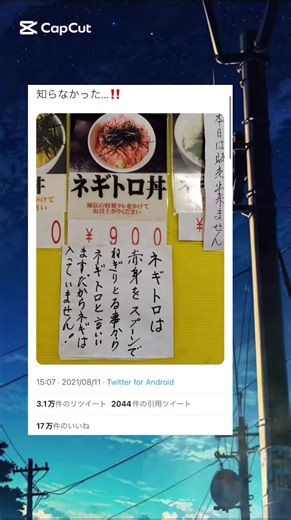 CapCut
知らなかった...‼️
ネギトロ丼
秘伝の特製タレをかけて
お召上がりください
¥900
0
丼
かけて
い
¥
本日は販売出来ません
ネギトロは
赤身をスプーンで
ねぎりとる事から
ネギトロと言い
ます。だからネギは
入っていません!
15:07 · 2021/08/11 · Twitter for Android
3.1万件のリツイート 2044件の引用ツイート
17万件のいいね